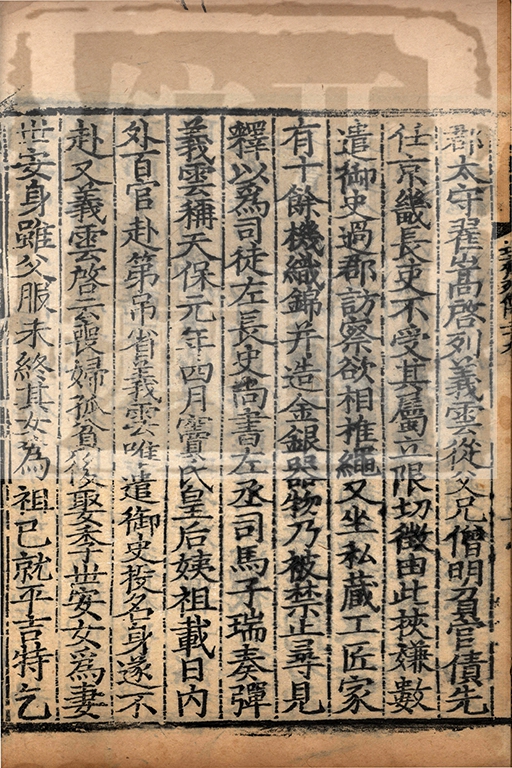 郡太守翟嵩啓列義雲從父兄僧明負官債先
任京畿長吏不受其屬立限切徵由此挾嫌數
遣御史過郡訪察欲相推繩又坐私藏工匠家
有十餘機織錦并造金銀器物乃被禁止尋見
釋以爲司徒左長史尚書左丞司馬子瑞奏彈
義雲稱天保元年四月竇氏皇后姨祖載日内
外百官赴第吊省義雲唯遣御史投名身遂不
赴又義雲啓云喪婦孤貧後娶李世安女爲妻
世安身雖父服未終其女爲祖已就平吉特乞